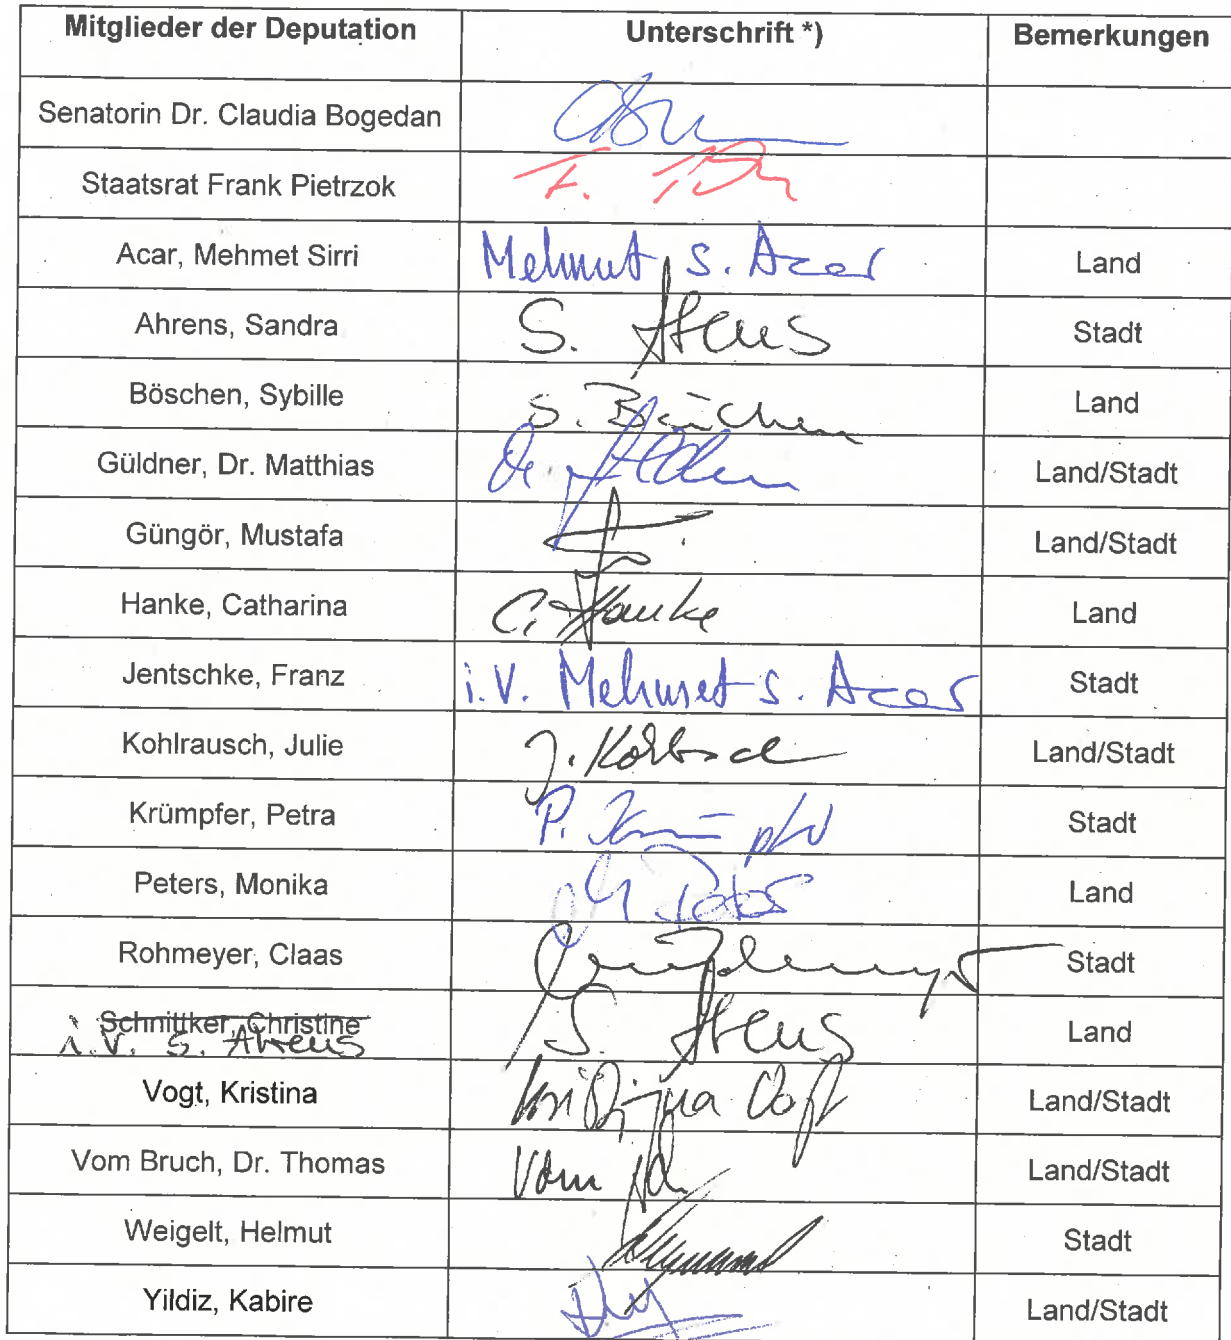 Mitglieder der Deputation Unterschrift *) Bemerkungen
Senatorin Dr. Claudia Bogedan
Staatsrat Frank Pietrzok F.
Acar, Mehmet Sirri Mehmet S. Acar Land
Ahrens, Sandra S. Ahrens Stadt
Böschen, Sybille S. Böschen Land
Güldner, Dr. Matthias Land/Stadt
Güngör, Mustafa Land/Stadt
Hanke, Catharina C. Hanke Land
Jentschke, Franz i.V. Mehmet S. Acar Stadt
Kohlrausch, Julie J. Kohlrausch Land/Stadt
Krümpfer, Petra P. Krümpfer Stadt
Peters, Monika M Peters Land
Rohmeyer, Claas Stadt
Schnittker, Christine S. Ahrens Land
i.V. S. Ahrens
Vogt, Kristina Kristina Vogt Land/Stadt
Vom Bruch, Dr. Thomas vom Land/Stadt
Weigelt, Helmut Stadt
Yildiz, Kabire Land/Stadt